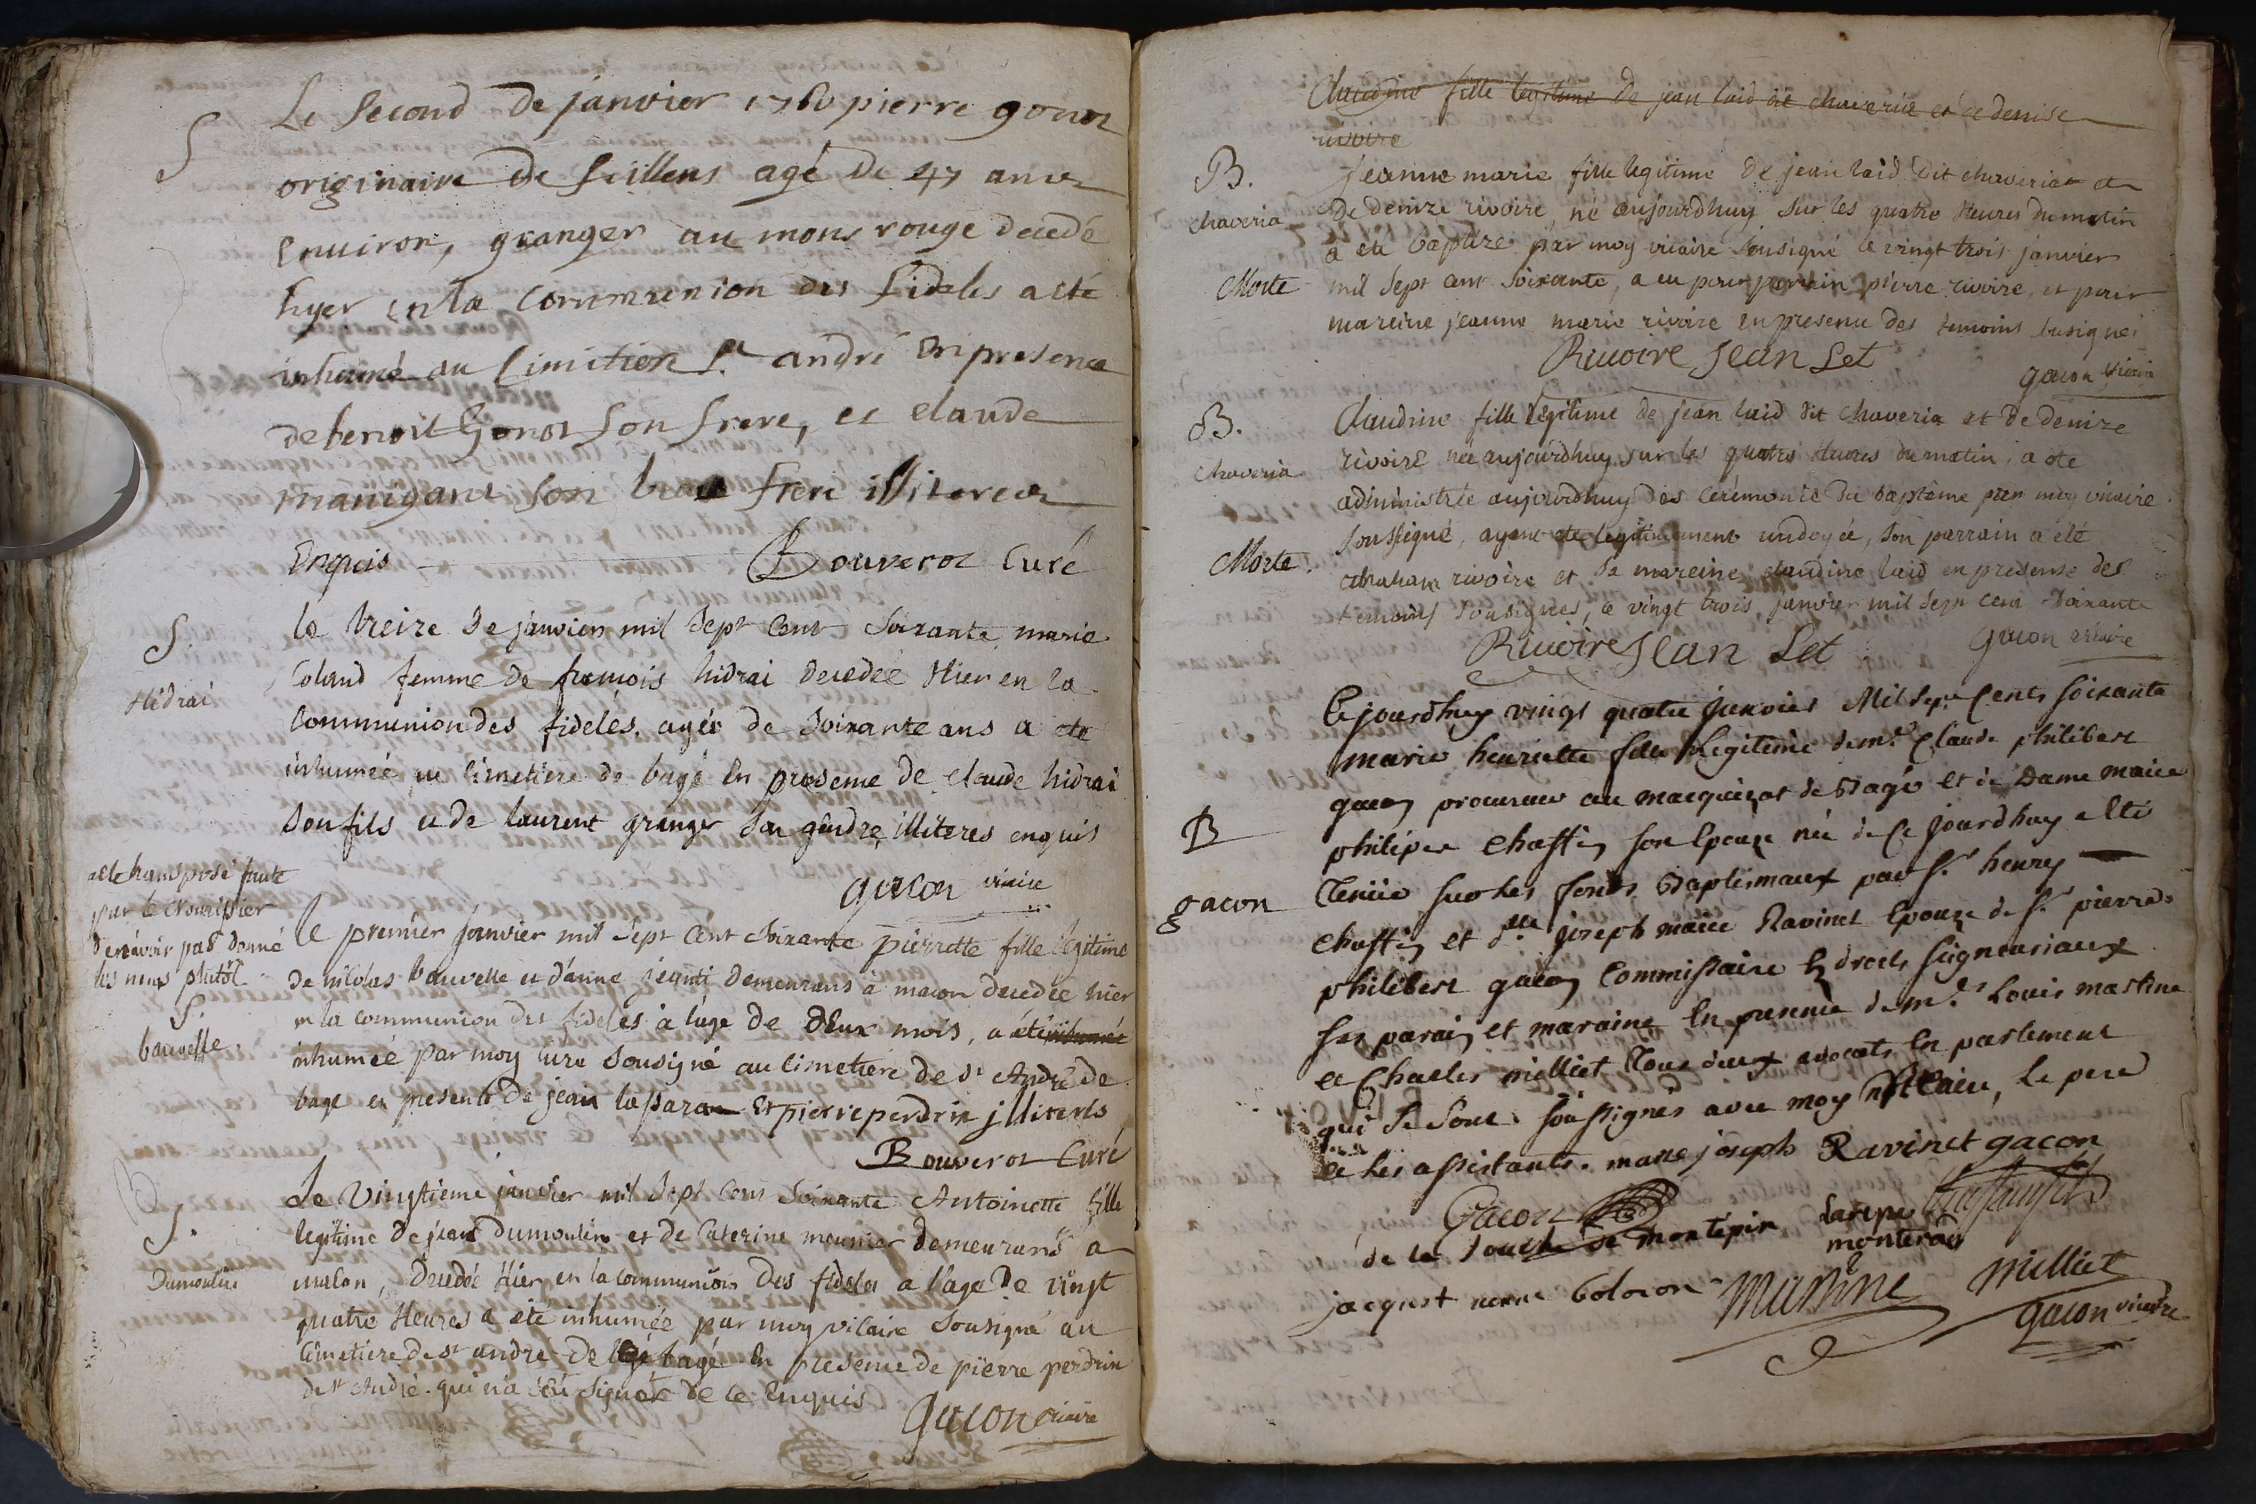 S
Le Second De janvier 1760 pierre gonot
originaire De feillens agé De 47 ans
Environ, granger au mons rouge decedé
hyer en la Communion des fideles a eté
inhumé au Cimitiere St andré En presence
de benoit Gonot Son frere, et claude
manigant Son beau frere illiteres
Enquis Bouverot Curé
S.
Hidrai
le treize De janvier mil Sept Cent Soixante marie
Coland femme de francois hidrai decedée Hier en la
Communion des fideles. agée de Soixante ans a ete
inhumée au Cimetiere de bagé En presence de claude hidrai
Son fils et de laurent granger Son gendre illiteres enquis
gacon vicaire
acte transposé faute
par le Nourissier
D'en avoir pas donné
les noms plutôt
S.
bauvelle.
le premier janvier mil Sept Cent Soixante pierrette fille legitime
de nicolas bauvelle et d'anne jeanti demeurans à macon decedée hier
en la communion des fideles à l'age de deux mois, a été inhumée
inhumée par moy curé Sousigné au Cimetiere de St André de
bagé en presence de jean laparan Et pierre perdrin jlliterés
Bouverot Curé
S.
Dumoulin
Le Vingtieme janvier mil Sept Cens Soixante Antoinette fille
legitime De jean Dumoulin et de Caterine meunier Demeurans a
macon, Decedée Hier en la communion Des fideles a l'age De vingt
quatre Heures a été inhumée par moy vicaire Sousigné au
Cimetiere de st andré de bagé En presence de pierre perdrin
de st André. qui n'a Scu Signer de ce Enquis
gacon vicaire
Claudine fille legitime De jean laid dit chaveria et de denise
rivoire
B.
chaveria
Morte
Jeanne marie fille legitime De jean laid Dit chaveria et
De denize rivoire, né aujourdhuy Sur les quatre Heures du matin
a été baptizé par moy vicaire Sousigné le vingt trois janvier
mil Sept cent Soixante, a eu pour parrain pierre rivoire, et pour
mareine jeanne marie rivoire en presence des temoins Susignés
Rivoire Jean Let
gacon vicaire
B.
Chaveria
Morte.
Claudine fille legitime de jean laid dit Chaveria et De denize
rivoire née aujourdhuy sur les quatre Heures du matin, a ete
administrée aujourdhuy Des Cerémonie du baptême par moy vicaire
Soussigné, ayant ete legitimement undoyée, Son parrain a été
abraham rivoire et Sa mareine, claudine laid en presense des
temoins Sousignés, le vingt trois janvier mil Sept Cent Soixante
Rivoire Jean Let
gacon vicaire
B
gacon
Cejourdhuy vingt quatre Janvier Mil Sept Cents Soixante
marie henriette fille Legitime de mr. Claude philibert
gacon procureur au marquizat de Bagé et de Dame marie
philipe Chaffin Son Epouze née de Ce jourdhuy a Eté
Tenüe Sur les fonds Baptismaux par Sr. henry
Chaffin et dlle joseph marie Ravinet Epouze de Sr pierre
philibert gacon Commissaire En droits Seigneuriaux
Ses parain et maraine En presence de mrs Louis martine
et Charles milliet Tous deux avocats En parlement
qui Se Sont Soussignés avec moy Vicaire, Le pere
et les assistants. marie joseph Ravinet gacon
Gacon
de la Touche de montépin
jacquet
martine
milliet
gacon vicaire